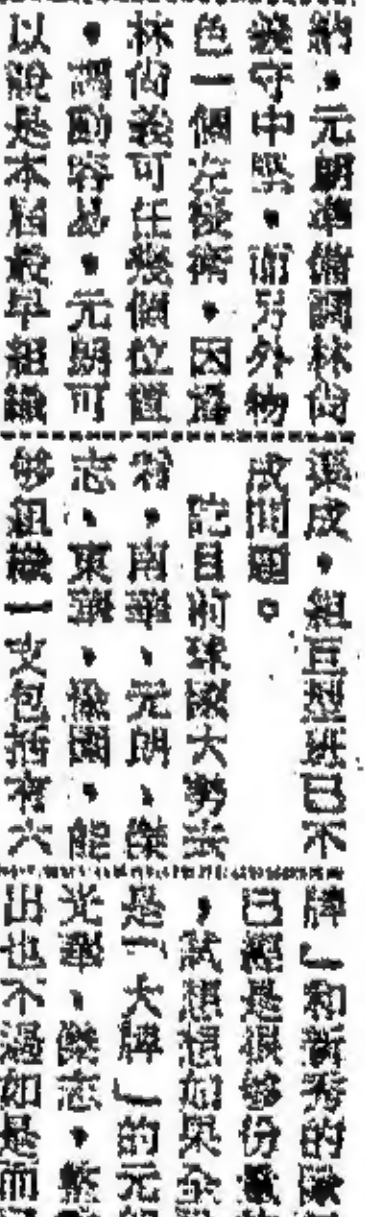 納,元朗準備調林尚
義守中堅,而另外物
色一個左後衛,因為
林尚義可任幾個位置
,調動容易,元朗可
以說是本屆最早組織
選成,組巨型班已不
成問題。
院目前球圈大勢
,南華、元朗、傑
志、東華、愉園,能
够組織一支包括有六
牌」和新秀的
已經是很够份
,試想想如果
是「大牌」的元
光華、傑志,
出也不過如是而